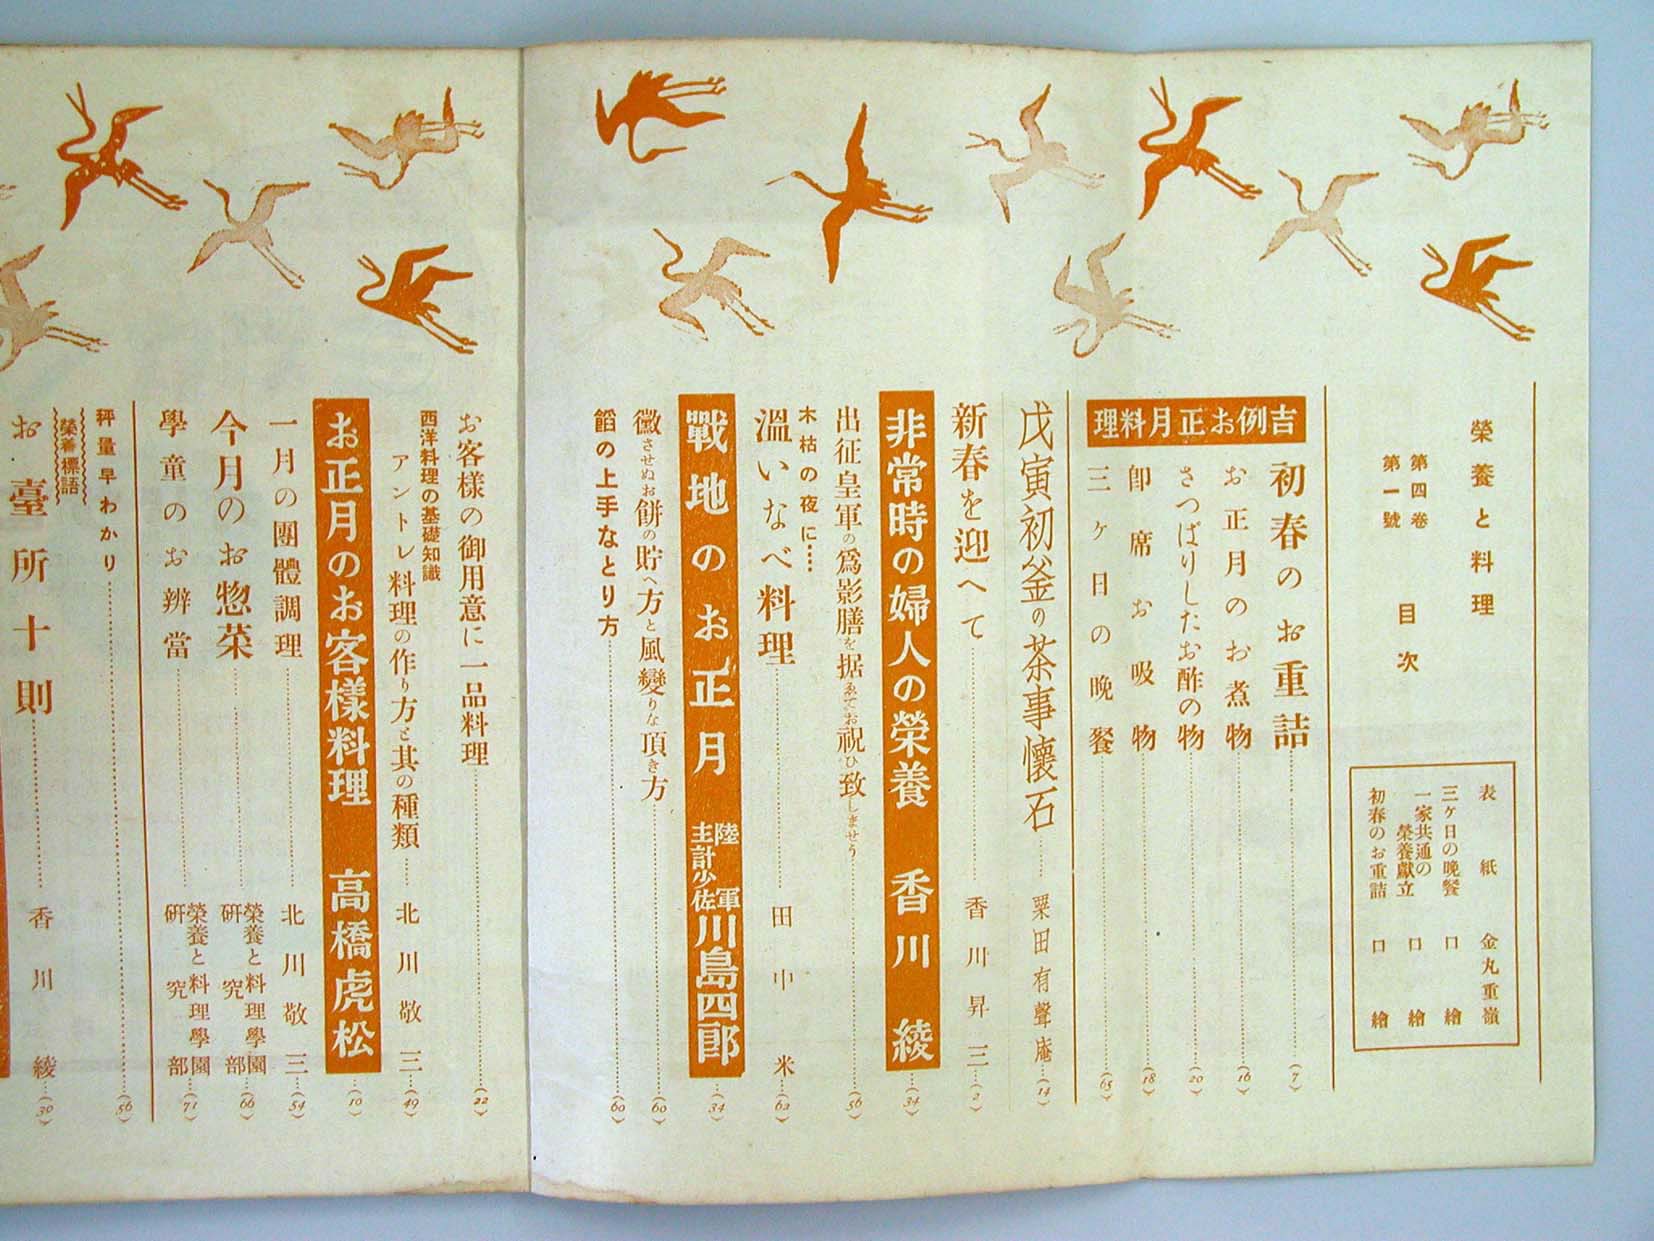 榮養と料理
第四卷
第一號
目次
表紙 金丸重嶺
三ケ日の晩餐 口繪
一家共通の榮養獻立 口繪
初春のお重詰 口繪
吉例お正月料理
初春のお重詰……(7)
お正月のお煮物……(16)
さつぱりしたお酢の物……(20)
卽席お吸物……(18)
三ケ日の晩餐……(65)
戊寅初釜の茶事懷石……粟田有聲庵…(14)
新春を迎へて……香川昇三…(2)
非常時の婦人の榮養 香川綾…(34)
出征皇軍の爲影膳を据ゑてお祝ひ致しませう……(56)
木枯の夜に……
溫いなべ料理……田中米…(62)
戰地のお正月 陸軍主計少佐 川島四郎…(34)
黴させぬお餅の貯へ方と風變りな頂き方……(60)
餡の上手なとり方……(60)
お客樣の御用意に一品料理……(22)
西洋料理の基礎知識
アントレ料理の作り方と其の種類……北川敬三…(49)
お正月のお客樣料理 高橋虎松…(10)
一月の團體調理……北川敬三…(54)
今月のお惣菜……榮養と料理學園硏究部…(66)
學童のお辨當……榮養と料理學園硏究部…(71)
秤量早わかり……(56)
榮養標語
お臺所十則……香川綾…(30)